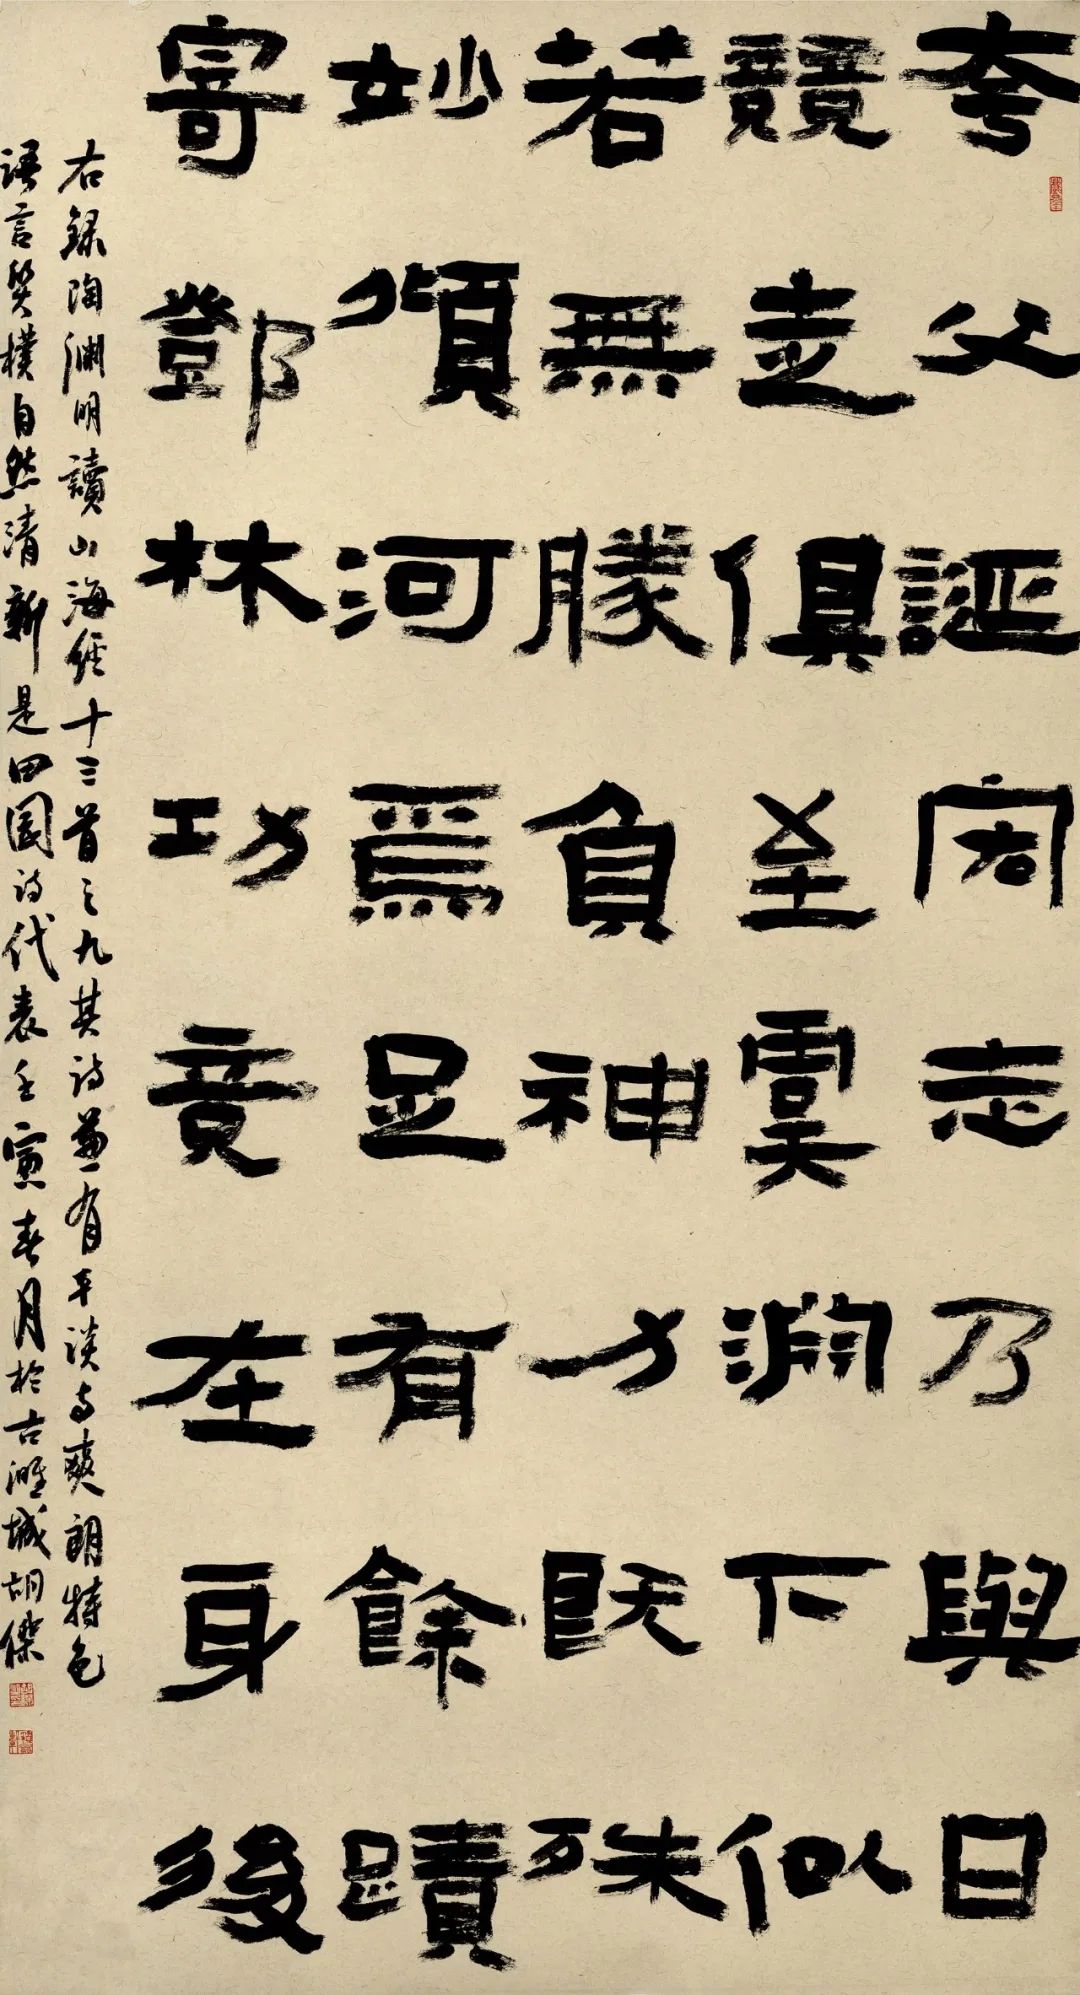 夸父誕宏志乃與日
競走俱至虞淵下似
若無勝負神力既殊
妙傾河焉足有餘蹟
寄鄧林功竟在身後
右錄陶淵明讀山海經十三首之九其詩兼有平淡與爽朗特色
語言質樸自然清新是田園詩代表壬寅春月於古濉城胡傑